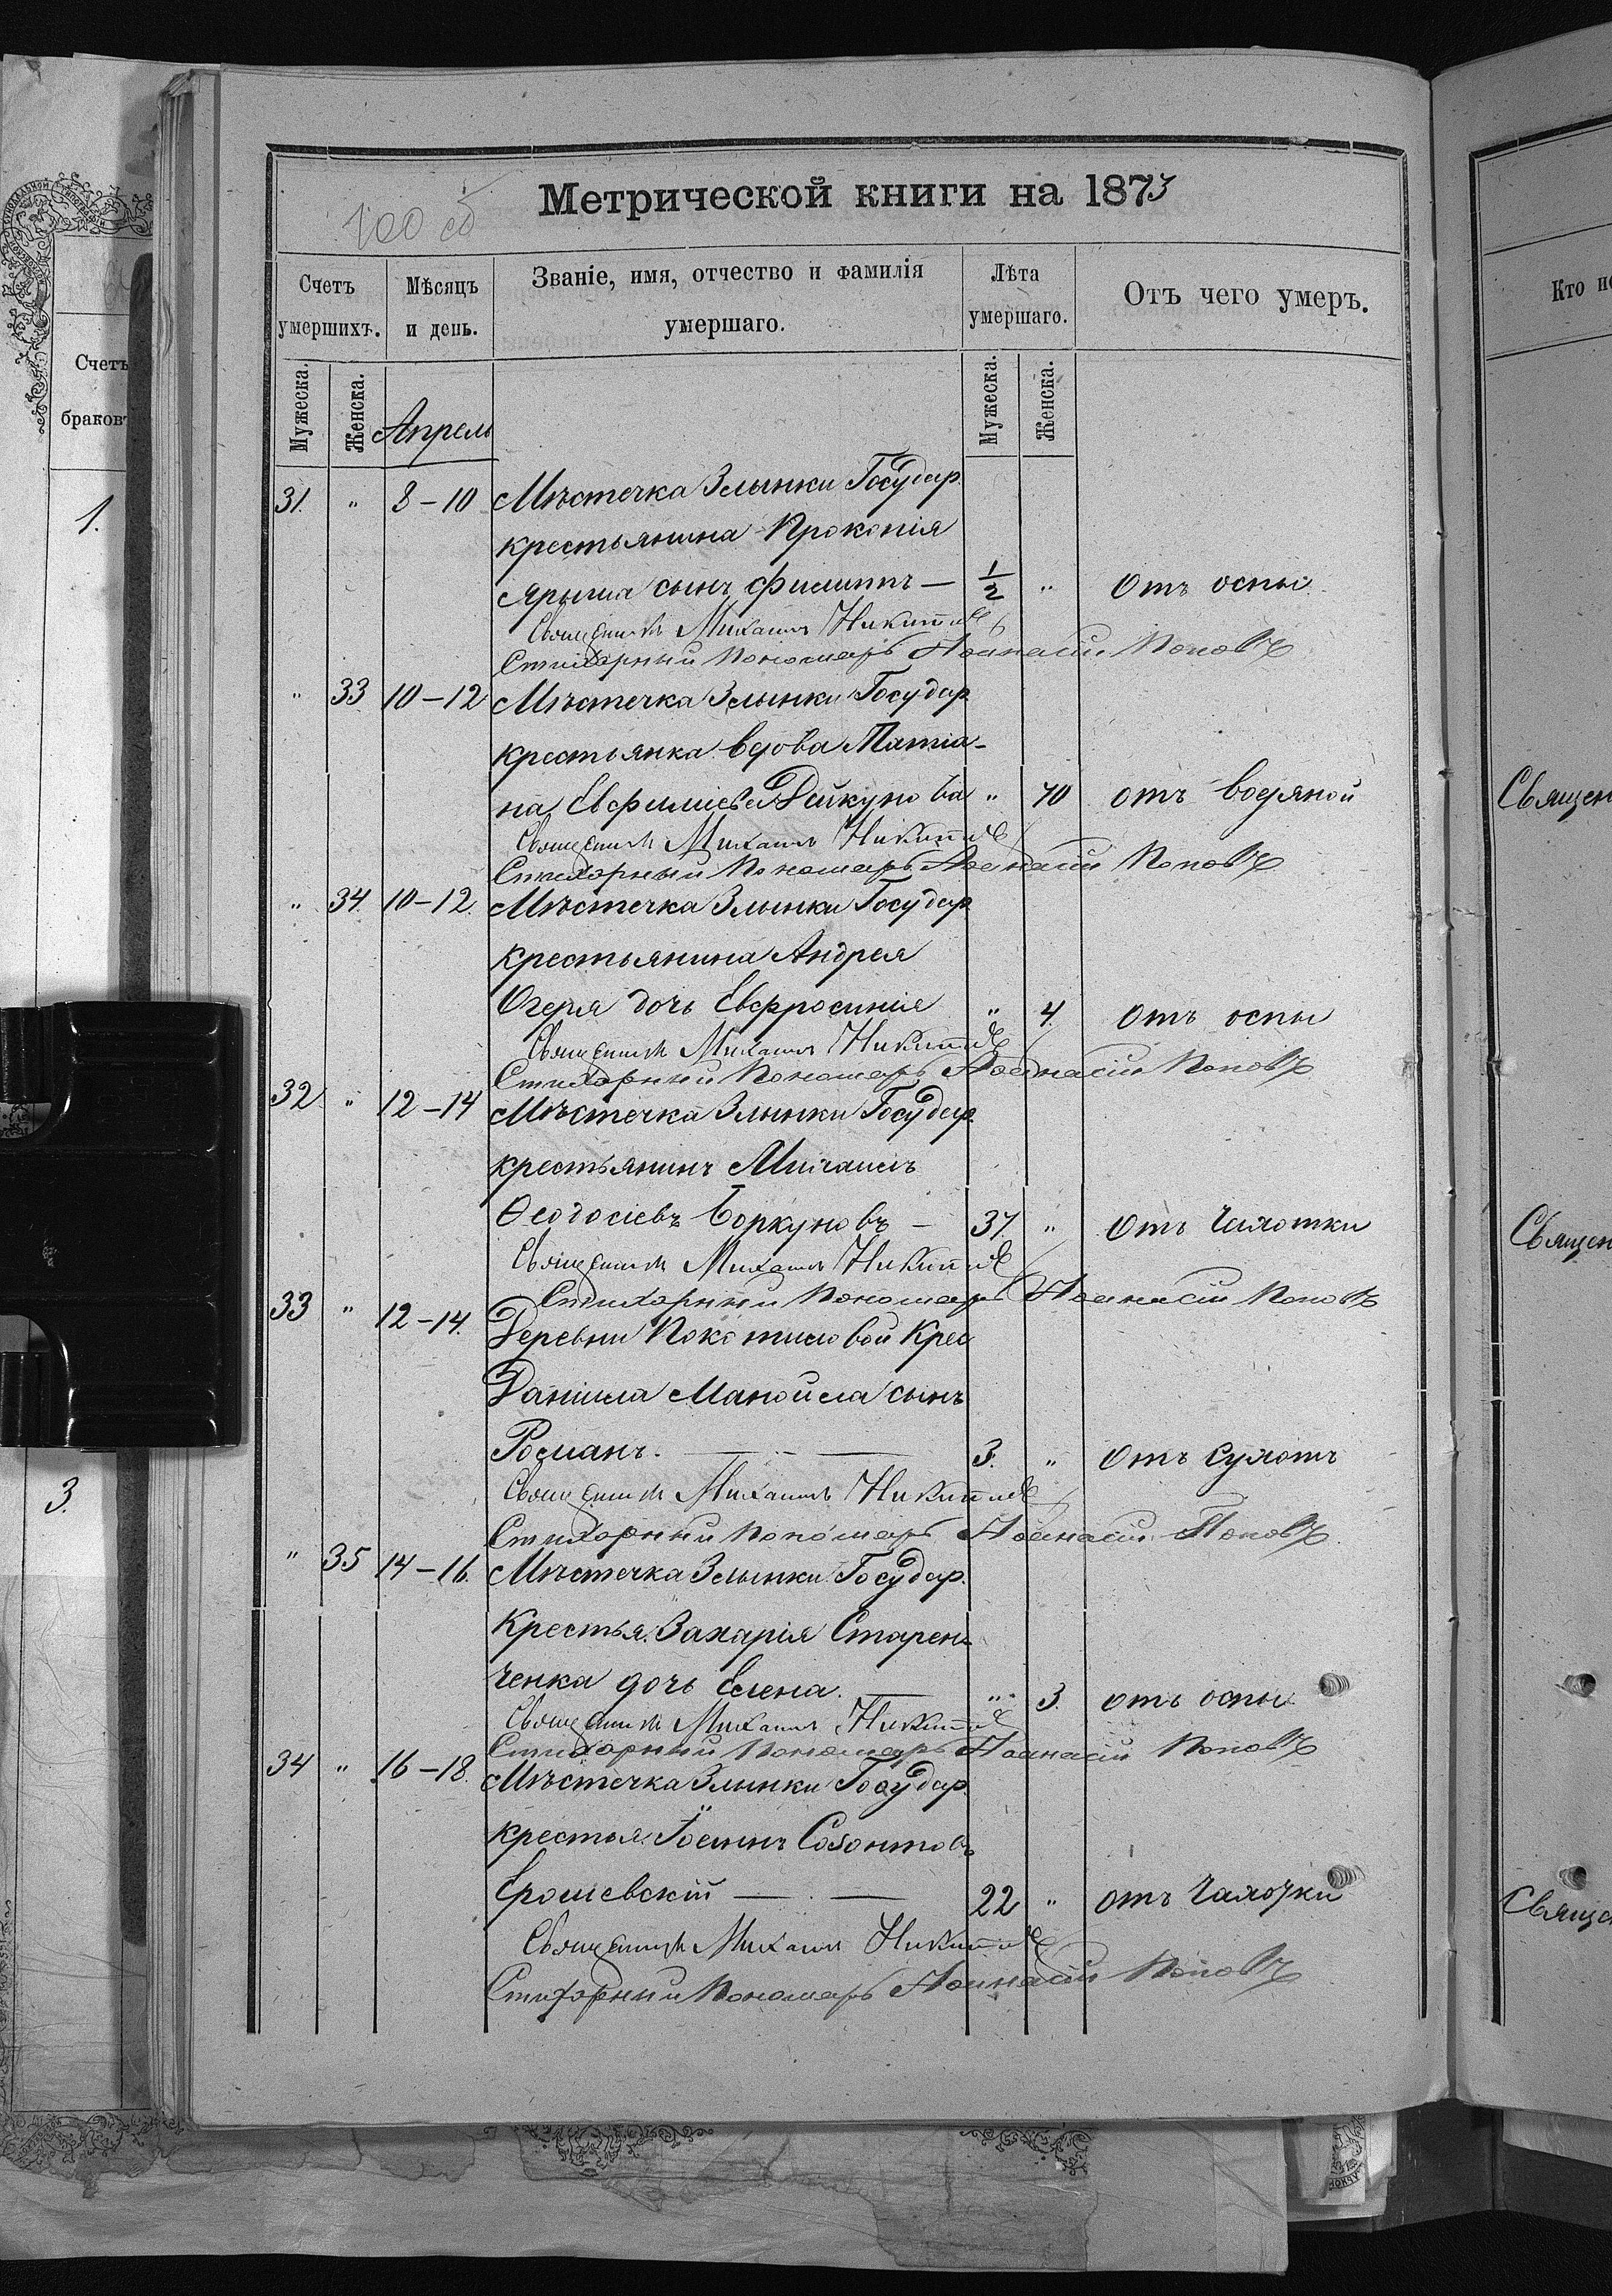 Метрической книги на 1873
100 об
Счетъ умершихъ.
Мѣсяцъ и день.
Званіе, имя, отчество и фамилія умершаго.
Лѣта умершаго.
Отъ чего умеръ.
Мужеска.
Женска.
Апрель
Мужеска.
Женска.
31. " 8-10 Мѣстечка Злынки Государ.
крестьянина Прокопія
сынъ Филиппъ — 1/2 " Отъ оспы.
Священникъ Михаилъ
Стихарный Пономарь Аѳанасій Поповъ
" 33 10-12 Мѣстечка Злынки Государ
крестьянка вдова Татіа-
на Евфиміева Дейкунова " 70 отъ водяной
Священникъ Михаилъ
Стихарный Пономарь Аѳанасій Поповъ
" 34. 10-12. Мѣстечка Злынки Государ
крестьянина Андрея
дочь Евфросинія " 4. Отъ оспы
Священникъ Михаилъ
Стихарный Пономарь Аѳанасій Поповъ
32. " 12-14 Мѣстечка Злынки Государ.
крестьянинъ Михаилъ
Ѳеодосіевъ Боркуновъ — 37. " Отъ Чахотки
Священникъ Михаилъ
Стихарный Пономарь Аѳанасій Поповъ
33 " 12-14. Деревни Покотиловой Крес
Даніила Манойла сынъ
Романъ. — 3. " Отъ Сухотъ
Священникъ Михаилъ
Стихарный Пономарь Аѳанасій Поповъ.
" 35 14-16. Мѣстечка Злынки Государ.
Крестья. Захарія Старен-
ченка дочь Елена. — " 3. отъ оспы
Священникъ Михаилъ
Стихарный Пономарь Аѳанасій Поповъ
34 " 16-18. Мѣстечка Злынки Государ.
крестья. Іоаннъ Созонтовъ
Ерошевскій — 22 " отъ Чахотки
Священникъ Михаилъ
Стихарный Пономарь Аѳанасій Поповъ
Счетъ
браковъ
1.
3.
Кто
Священ
Священ
Свяще